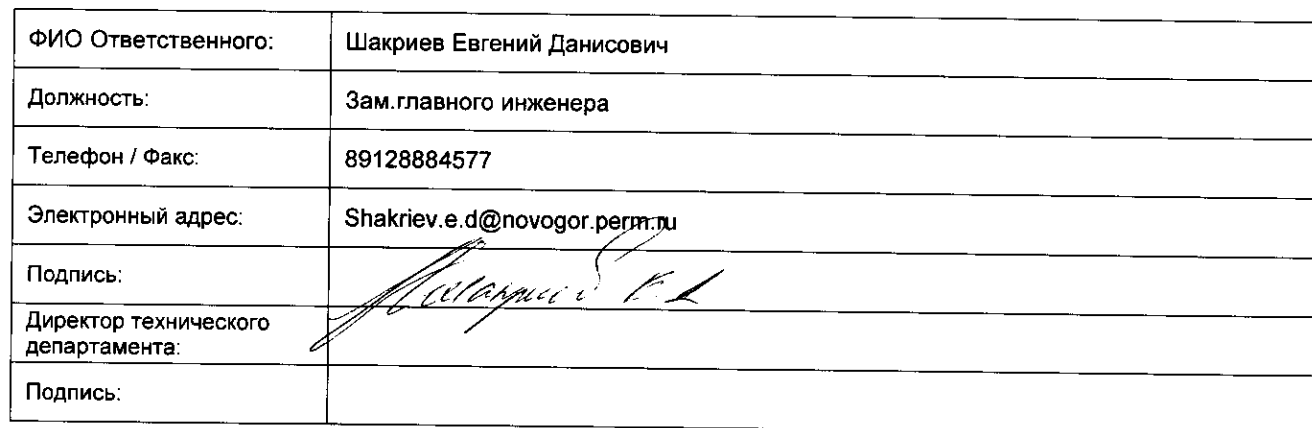 ФИО Ответственного: Шакриев Евгений Данисович
Должность: Зам.главного инженера
Телефон / Факс: 89128884577
Электронный адрес: Shakriev.e.d@novogor.perm.ru
Подпись: Шакриев Е.Д
Директор технического
департамента:
Подпись: